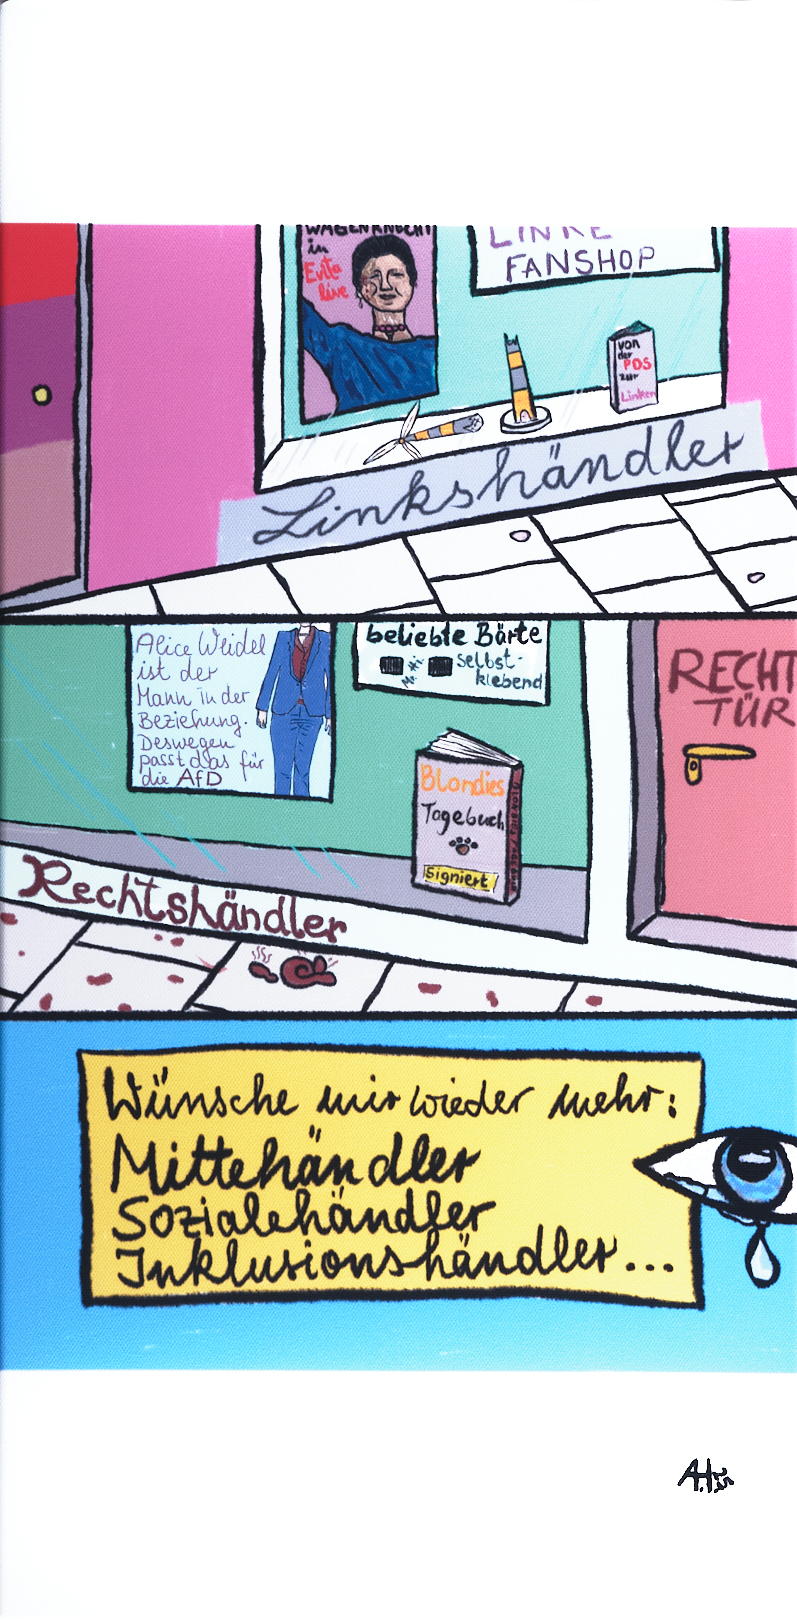 WAGENKNECHT
in
Evita
live
LINKE
FANSHOP
von
der
PDS
zur
Linken
Linkshändler
Alice Weidel
ist der
Mann in der
Beziehung.
Deswegen
passt das für
die AfD
beliebte Bärte
Selbst-
klebend
RECHT
TÜR
Blondies
Tagebuch
signiert
Rechtshändler
Wünsche mir wieder mehr:
Mittehändler
Sozialehändler
Inklusionshändler...